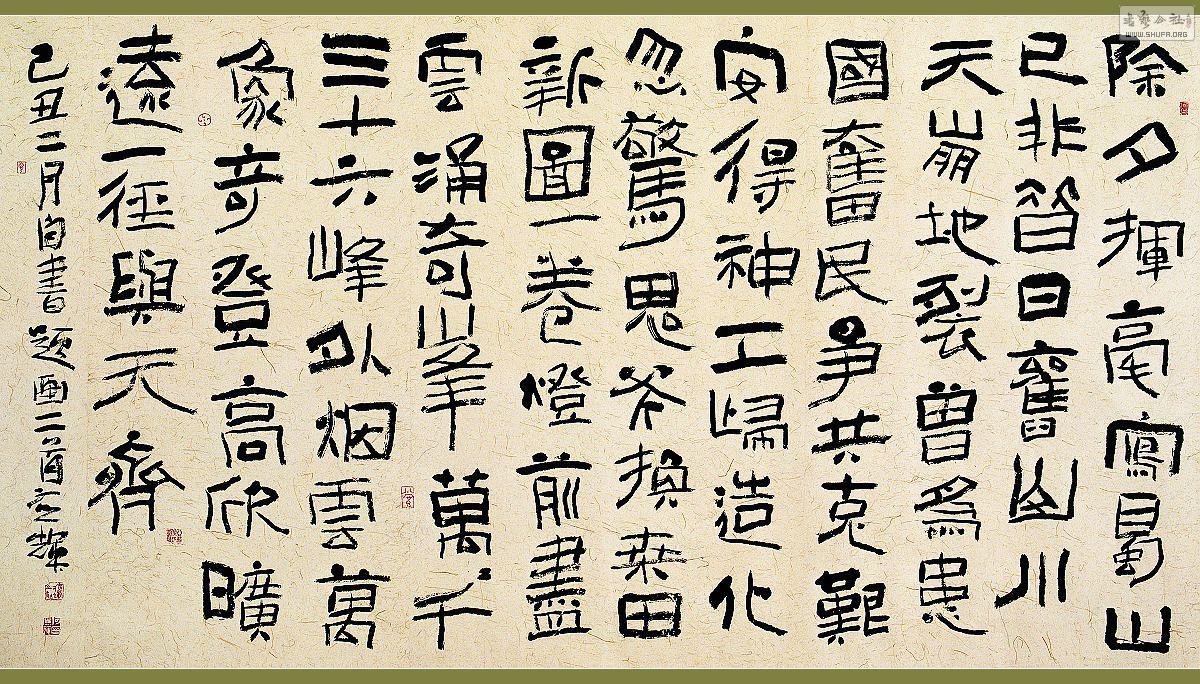 除夕揮毫寫蜀山
已非昔日舊山川
天崩地裂曾為患
國奮民爭共克艱
安得神工歸造化
忽驚鬼斧換桑田
新圖一卷燈前盡
雲涌奇峯萬千
三十六峰外烟雲萬
象奇登高欣曠
遠一徑與天齊
己丑二月自書題画二首
WWW.SHUFA.ORG